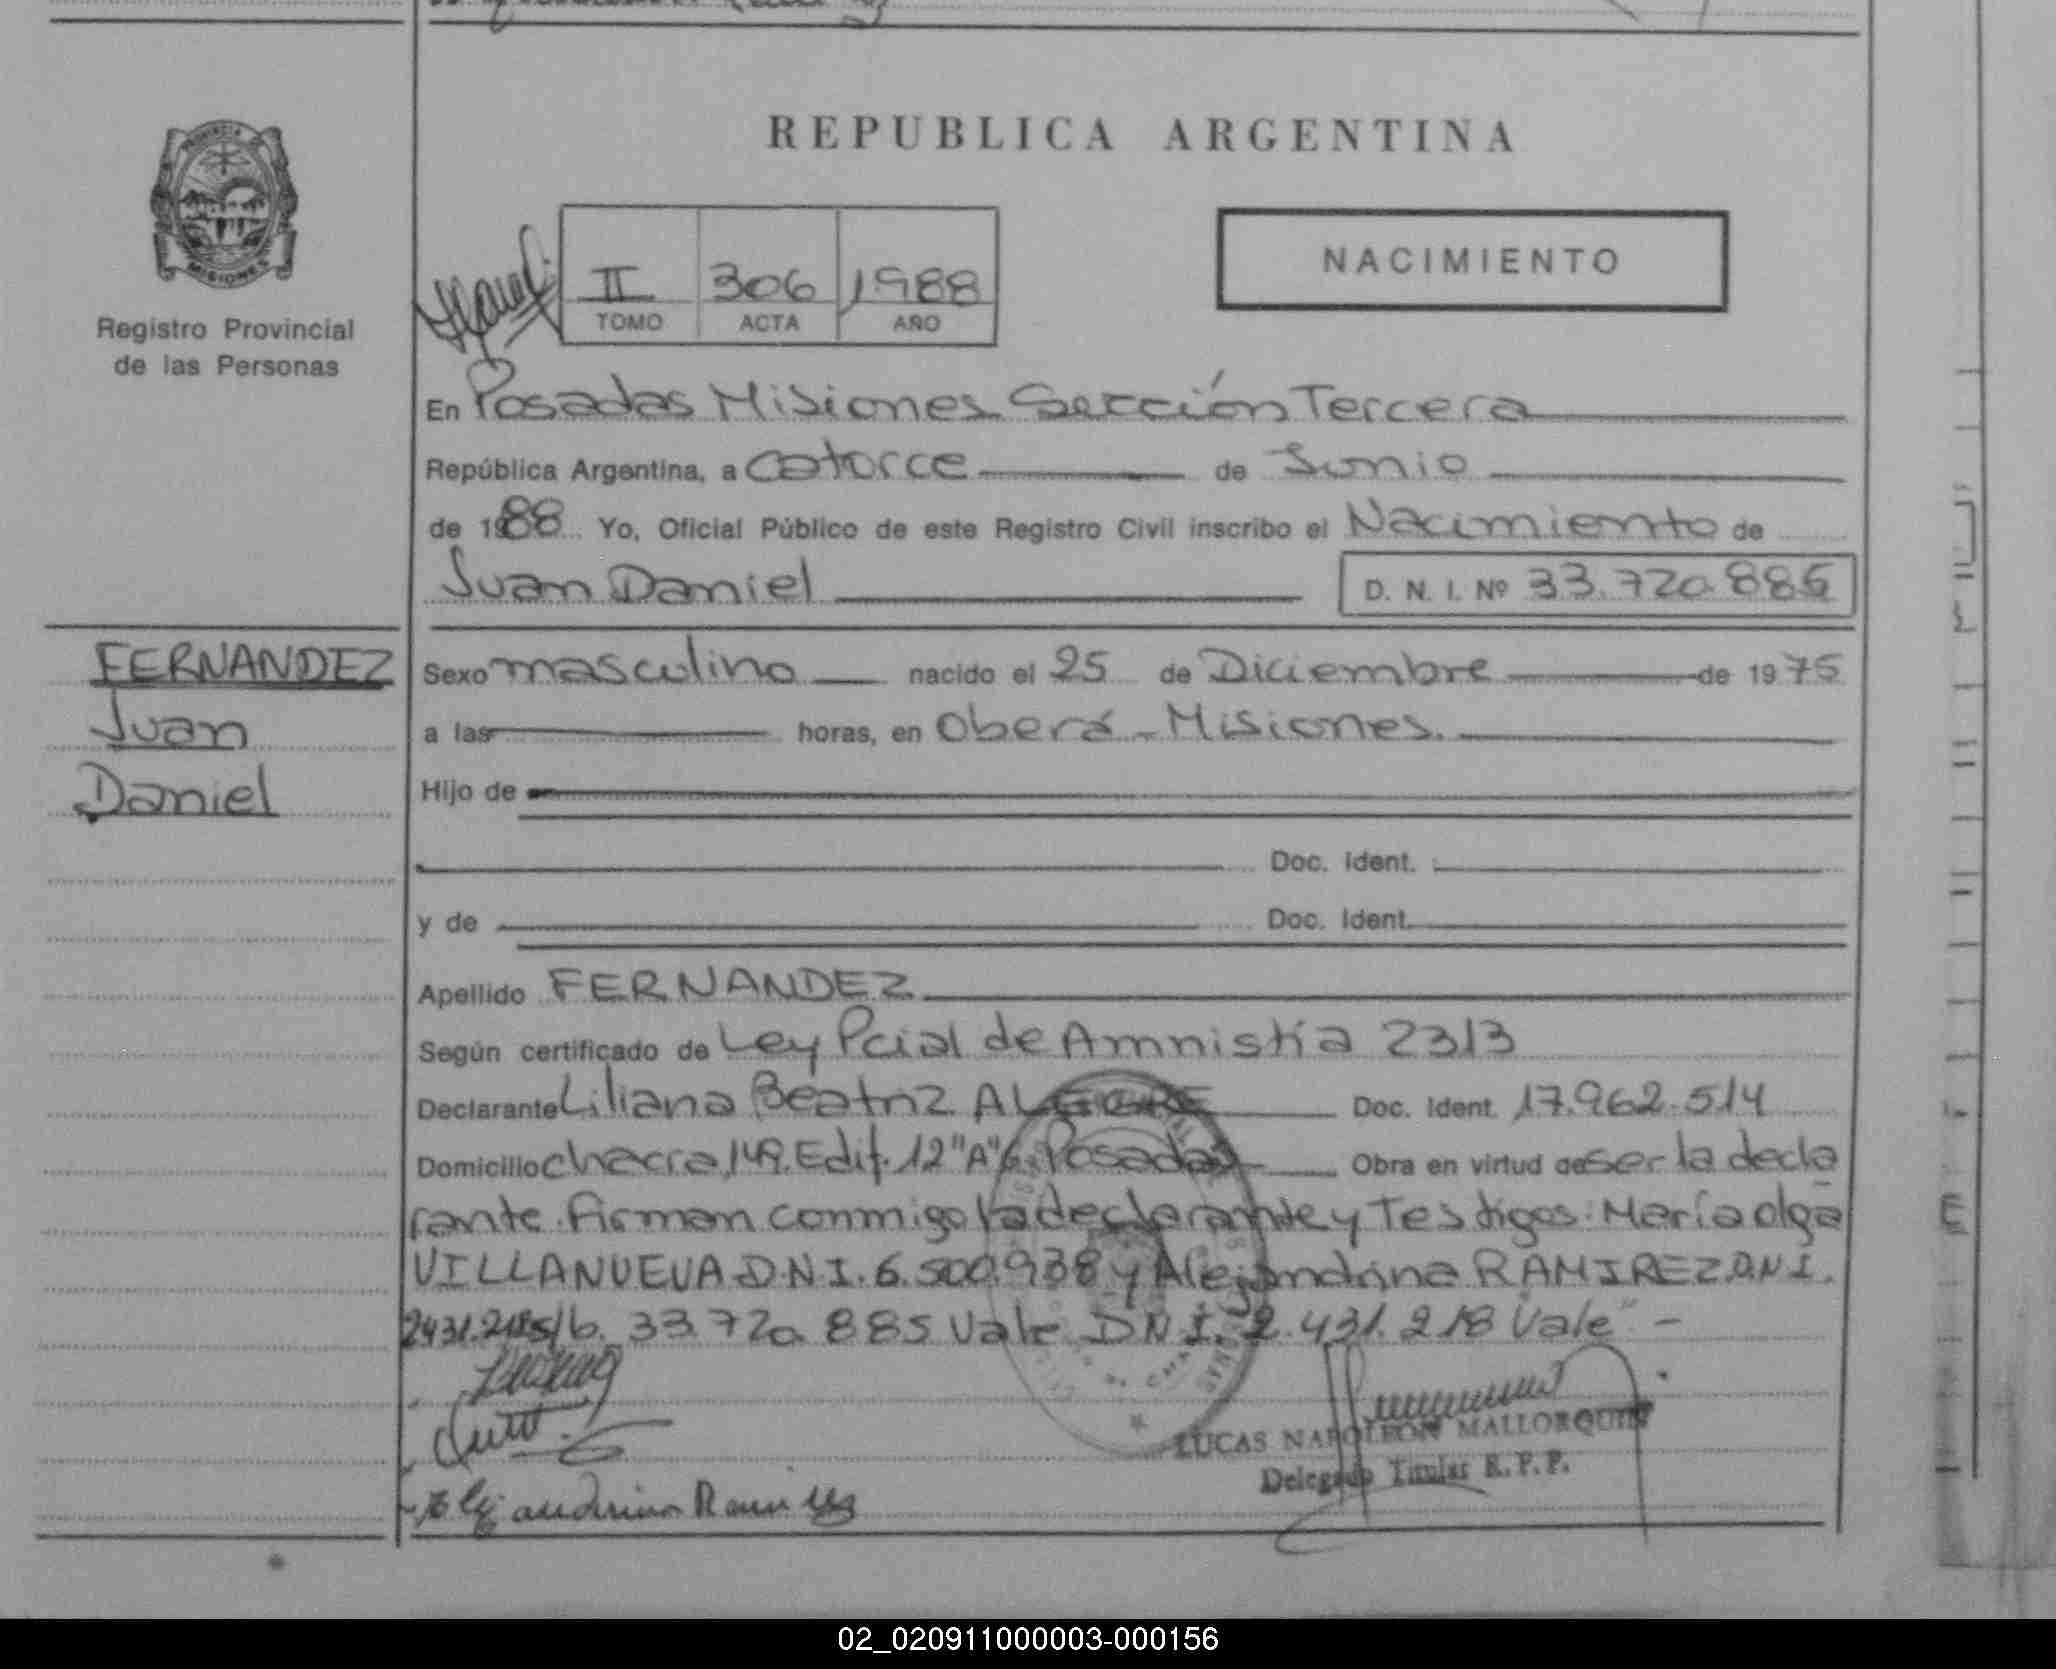 REPUBLICA ARGENTINA
PROVINCIA
MISIONES
Registro Provincial
de las Personas
II 306 1988
TOMO ACTA AÑO
NACIMIENTO
En Posadas Misiones Sección Tercera
República Argentina, a catorce de Junio
de 1988 Yo, Oficial Público de este Registro Civil inscribo el Nacimiento de
Juan Daniel D. N. I. Nº 33.720.885
FERNANDEZ
Juan
Daniel
Sexo masculino nacido el 25 de Diciembre de 1975
a las horas, en Oberá - Misiones.
Hijo de
Doc. Ident.
y de Doc. Ident.
Apellido FERNANDEZ
Según certificado de Ley Pcial de Amnistía 2313
Declarante Liliana Beatriz ALEGRE Doc. Ident. 17.962.514
Domicilio chacra, 149. Edif. 12 "A" Posadas Obra en virtud de ser la decla
rante. Firman conmigo la declarante y Testigos: María olga
VILLANUEVA D.N.I. 6.500.938 y Alejandrina RAMIREZ D.N.I.
2431.218 s/b. 33.720.885 Vale D.N.I. 2.431.218 Vale" -
LUCAS NAPOLEON MALLORQUIN
Delegado Titular R. P. P.
Alejandrina Ramirez
02_020911000003-000156